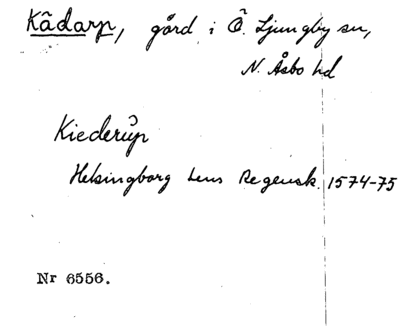 Kädarp, gård i Ö. Ljungby sn,
N. Åsbo hd
Kiederup
Helsingborg Lens Regensk. 1574-75
Nr 6556.